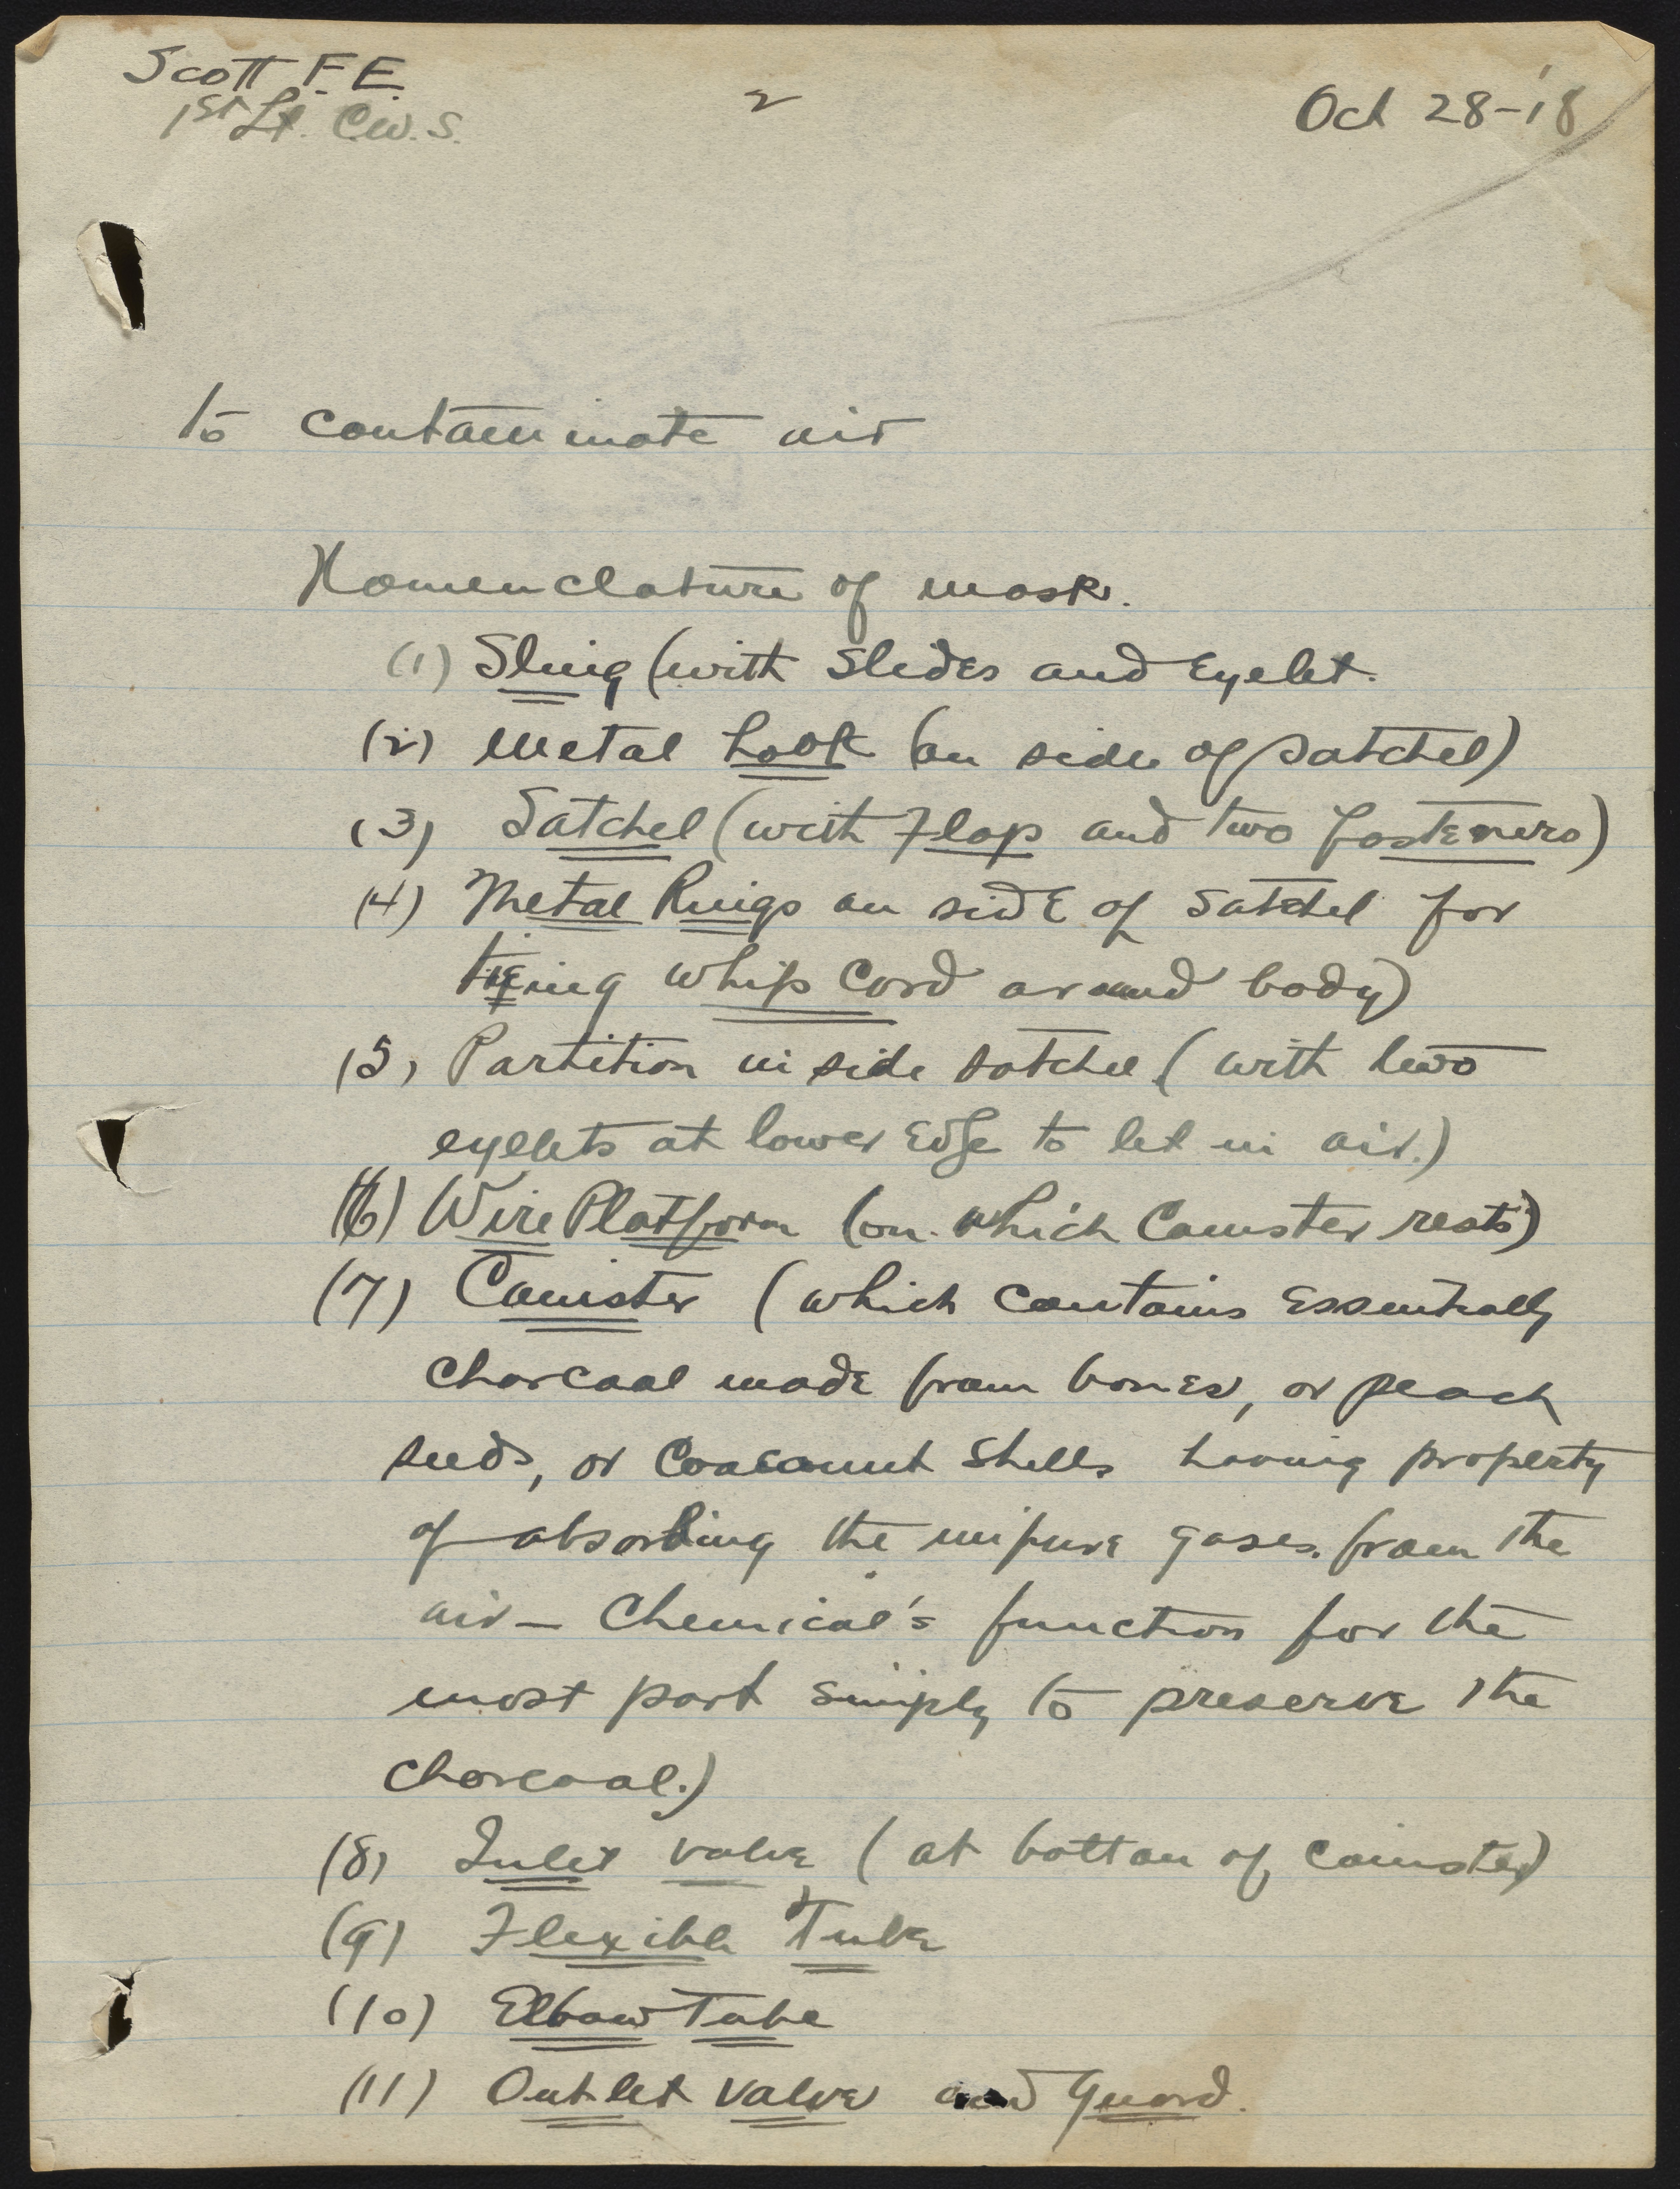 Scott F.E.
1st Lt. C.W.S.
2
Oct 28-'18
to contaminate air
Nomenclature of mask.
(1) Sling (with slides and Eyelet.
(2) Metal hook (on side of satchel)
(3) Satchel (with Flap and two fasteners)
(4) Metal Rings on side of satchel for
tieing whip cord around body)
(5) Partition inside satchel (with two
eyelets at lower Edge to let in air.)
(6) Wire Platform (on which Canister rests)
(7) Canister (which contains Essentially
charcoal made from bones, or peach
seeds, or Cocoanut shells having property
of absorbing the impure gases from the
air – Chemical's function for the
most part simply to preserve the
charcoal.)
(8) Inlet valve (at bottom of Canister)
(9) Flexible Tube
(10) Elbow Tube
(11) Outlet valve and Guard.